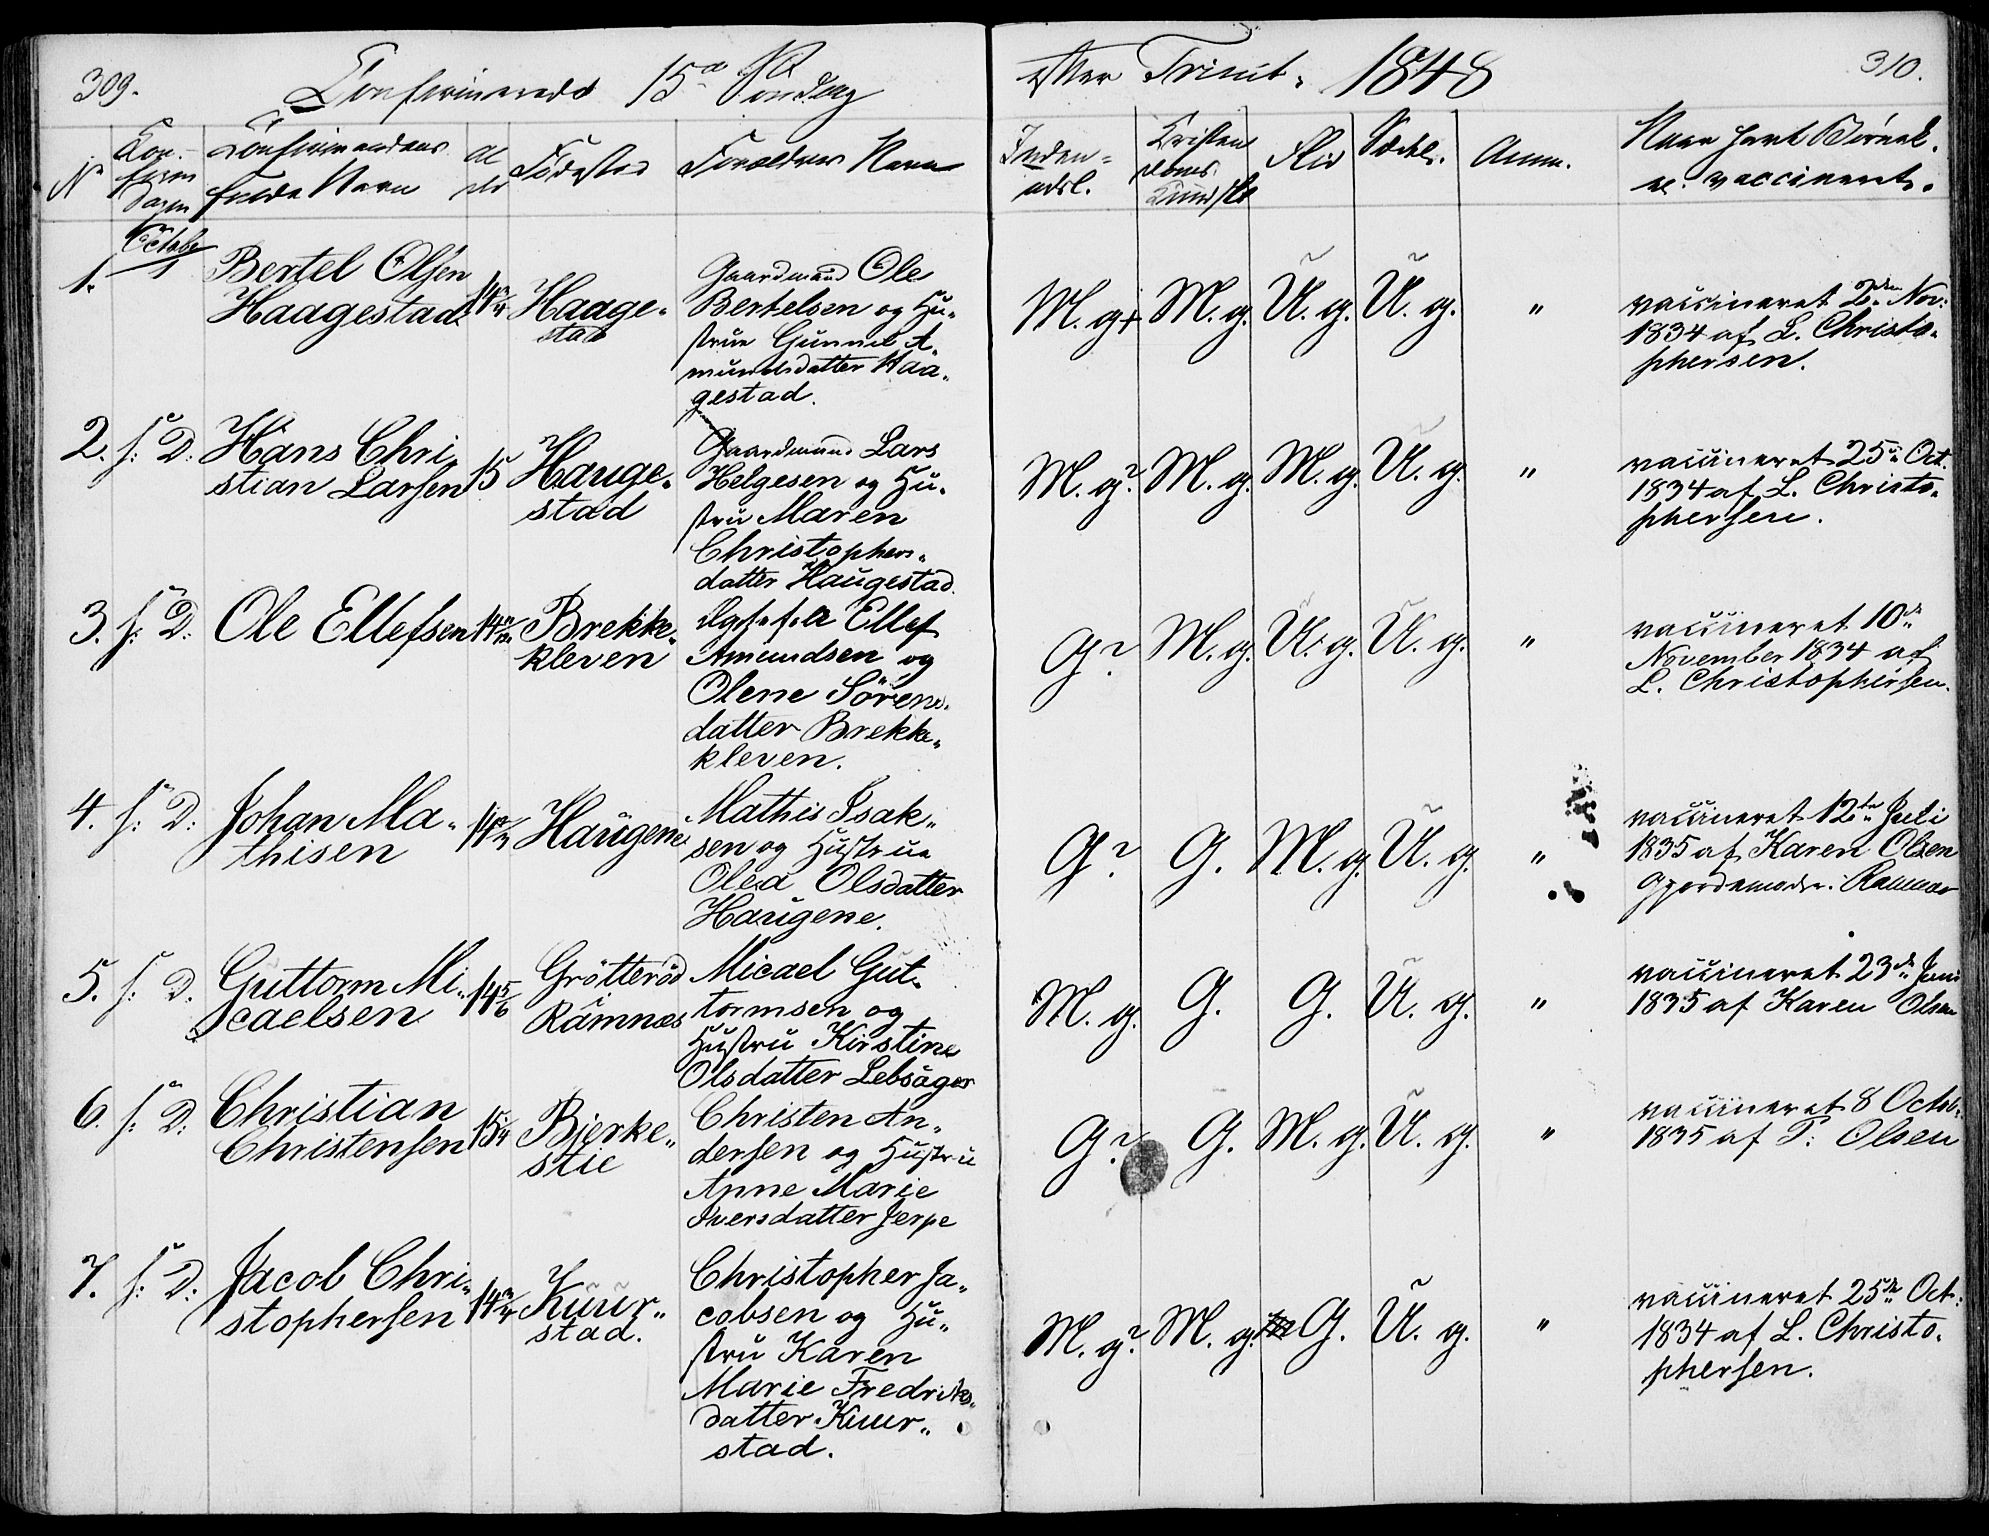 309.
Confirmerede 15de Søndag
efter Trinit. 1848
310.
No
Con-
firm
Dagen
Confirmandens
fulde Navn
Al
der
Fødested
Forældrenes Navn
Inden-
adsl.
Kristen
doms
Kundsk
Flid
Sædel.
Anm.
Naar samt Børnek.
el. vaccineret.
1.
October
1
Bertel Olsen
Haagestad
Haage-
stad
Gaardmand Ole
Bertelsen og Hu-
strue Gunnil A-
mundsdatter Haa-
gestad.
M. g+ M. g. U. g. U. g. "
vaccineret 2den Nov:
1834 af L. Christo-
phersen.
2. s: D:
Hans Chri-
stian Larsen
15
Hauge-
stad
Gaardmand Lars
Helgesen og Hu-
stru Maren
Christophers-
datter Haugestad.
M. g? M. g. M. g. U. g. "
vaccineret 25de Oct.
1834 af L. Christo-
phersen.
3. s: D:
Ole Ellefsen
Brekke-
kleven
Ellef
Amundsen og
Olene Sörens-
datter Brekke-
kleven.
G? M. g. U. g. U. g. "
vaccineret 10de
November 1834 af
L. Christophersen.
4. s: D:
Johan Ma-
thisen
Haugene
Mathis Isak-
sen og Hustrue
Olea Olsdatter
Haugene.
G? G. M. g. U. g. "
vaccineret 12te Juli
1835 af Karen Olsen
Gjordemoder i Ramnæs
5. s: D.
Guttorm Mi-
caelsen
14 5/6
Grötteröd
Ramnæs
Micael Gut-
tormsen og
Hustru Kirstine
Olsdatter Lebsager
M. g. G. G. U. g. "
vaccineret 23de Juni
1835 af Karen Olsen
6. s: D:
Christian
Christensen
15 1/4
Bjerke-
stie
Christen An-
dersen og Hustru
Anne Marie
Iversdatter Jerpe
G? G. M. g. U. g. "
vaccineret 8 Octob:
1835 af T: Olsen
7. s: D:
Jacob Chri-
stophersen
14 3/4
Kuur-
stad.
Christopher Ja-
cobsen og Hu-
stru Karen
Marie Fredriks-
datter Kuur-
stad.
M. g? M. g. G. U. g. "
vaccineret 25de Oct:
1834 af L. Christo-
phersen.